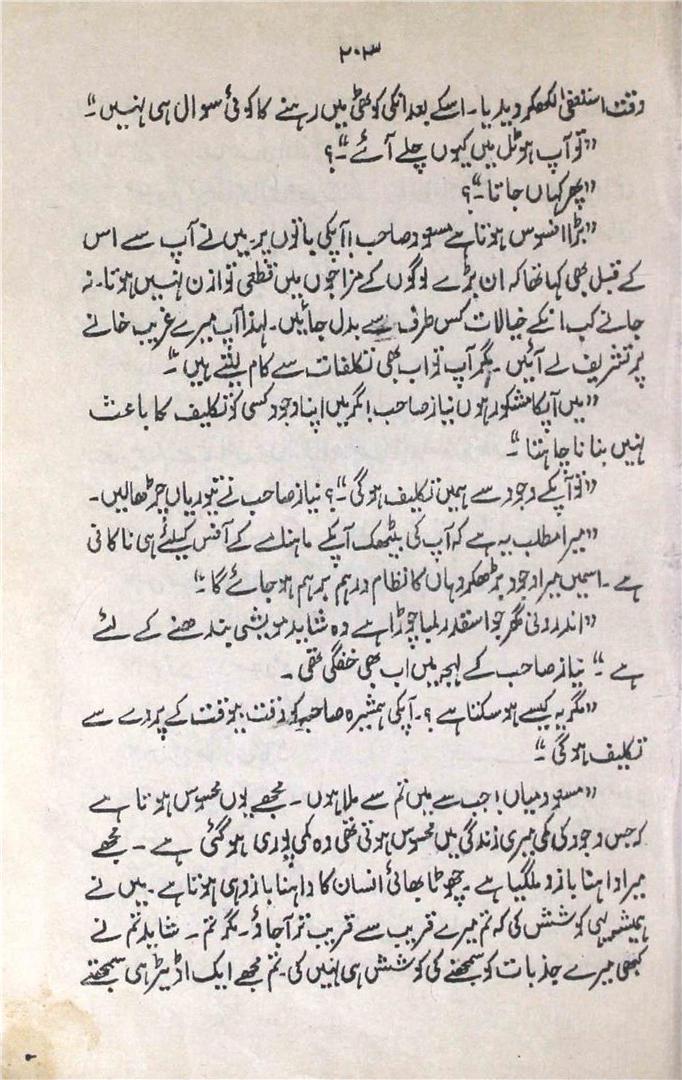 ۲۰۳
وقت استعفیٰ لکھکر دیدیا۔ اسکے بعد انکی کوٹھی میں رہنے کا کوئی سوال ہی نہیں۔"
"تو آپ ہوٹل میں کیوں چلے آئے"۔؟
"پھر کہاں جاتا"۔؟
"بڑا افسوس ہوتا ہے مسعود صاحب! آپکی باتوں پر۔ میں نے آپ سے اس
کے قبل بھی کہا تھا کہ ان بڑے لوگوں کے مزاجوں میں قطعی توازن نہیں ہوتا۔ نہ
جانے کب انکے خیالات کس طرف سے بدل جائیں۔ لہذا آپ میرے غریب خانے
پر تشریف لے آئیں۔ مگر آپ تو اب بھی تکلفات سے کام لیتے ہیں"۔
"میں آپکا مشکور ہوں نیاز صاحب! مگر میں اپنا وجود کسی کو تکلیف کا باعث
نہیں بنانا چاہتا"۔
"تو آپکے وجود سے ہمیں تکلیف ہوگی"۔؟ نیاز صاحب نے تیوریاں چڑھالیں۔
"میرا مطلب یہ ہے کہ آپ کی بیٹھک آپکے ماہنامے کے آفس کیلئے ہی ناکافی
ہے۔ اسمیں میرا وجود بڑھکر وہاں کا نظام درہم برہم ہو جائے گا"۔
"اندرونی گھر جو اسقدر لمبا چوڑا ہے وہ شاید مویشی بندھنے کے لئے
ہے"۔ نیاز صاحب کے لہجہ میں اب بھی خفگی تھی۔
"مگر یہ کیسے ہو سکتا ہے؟۔ آپکی ہمشیرہ صاحبہ کو وقت بیوقت کے پردے سے
تکلیف ہوگی"۔
"مسعود میاں! جب سے میں تم سے ملا ہوں۔ مجھے یوں محسوس ہوتا ہے
کہ جس وجود کی کمی میری زندگی میں محسوس ہوتی تھی وہ کمی پوری ہوگئی ہے۔ مجھے
میرا داہنا بازو ملگیا ہے۔ چھوٹا بھائی انسان کا داہنا بازو ہی ہوتا ہے۔ میں نے
ہمیشہ یہی کوشش کی کہ تم میرے قریب سے قریب تر آجاؤ۔ مگر تم۔ شاید تم نے
کبھی میرے جذبات کو سمجھنے کی کوشش ہی نہیں کی۔ تم مجھے ایک اڈیٹر ہی سمجھتے